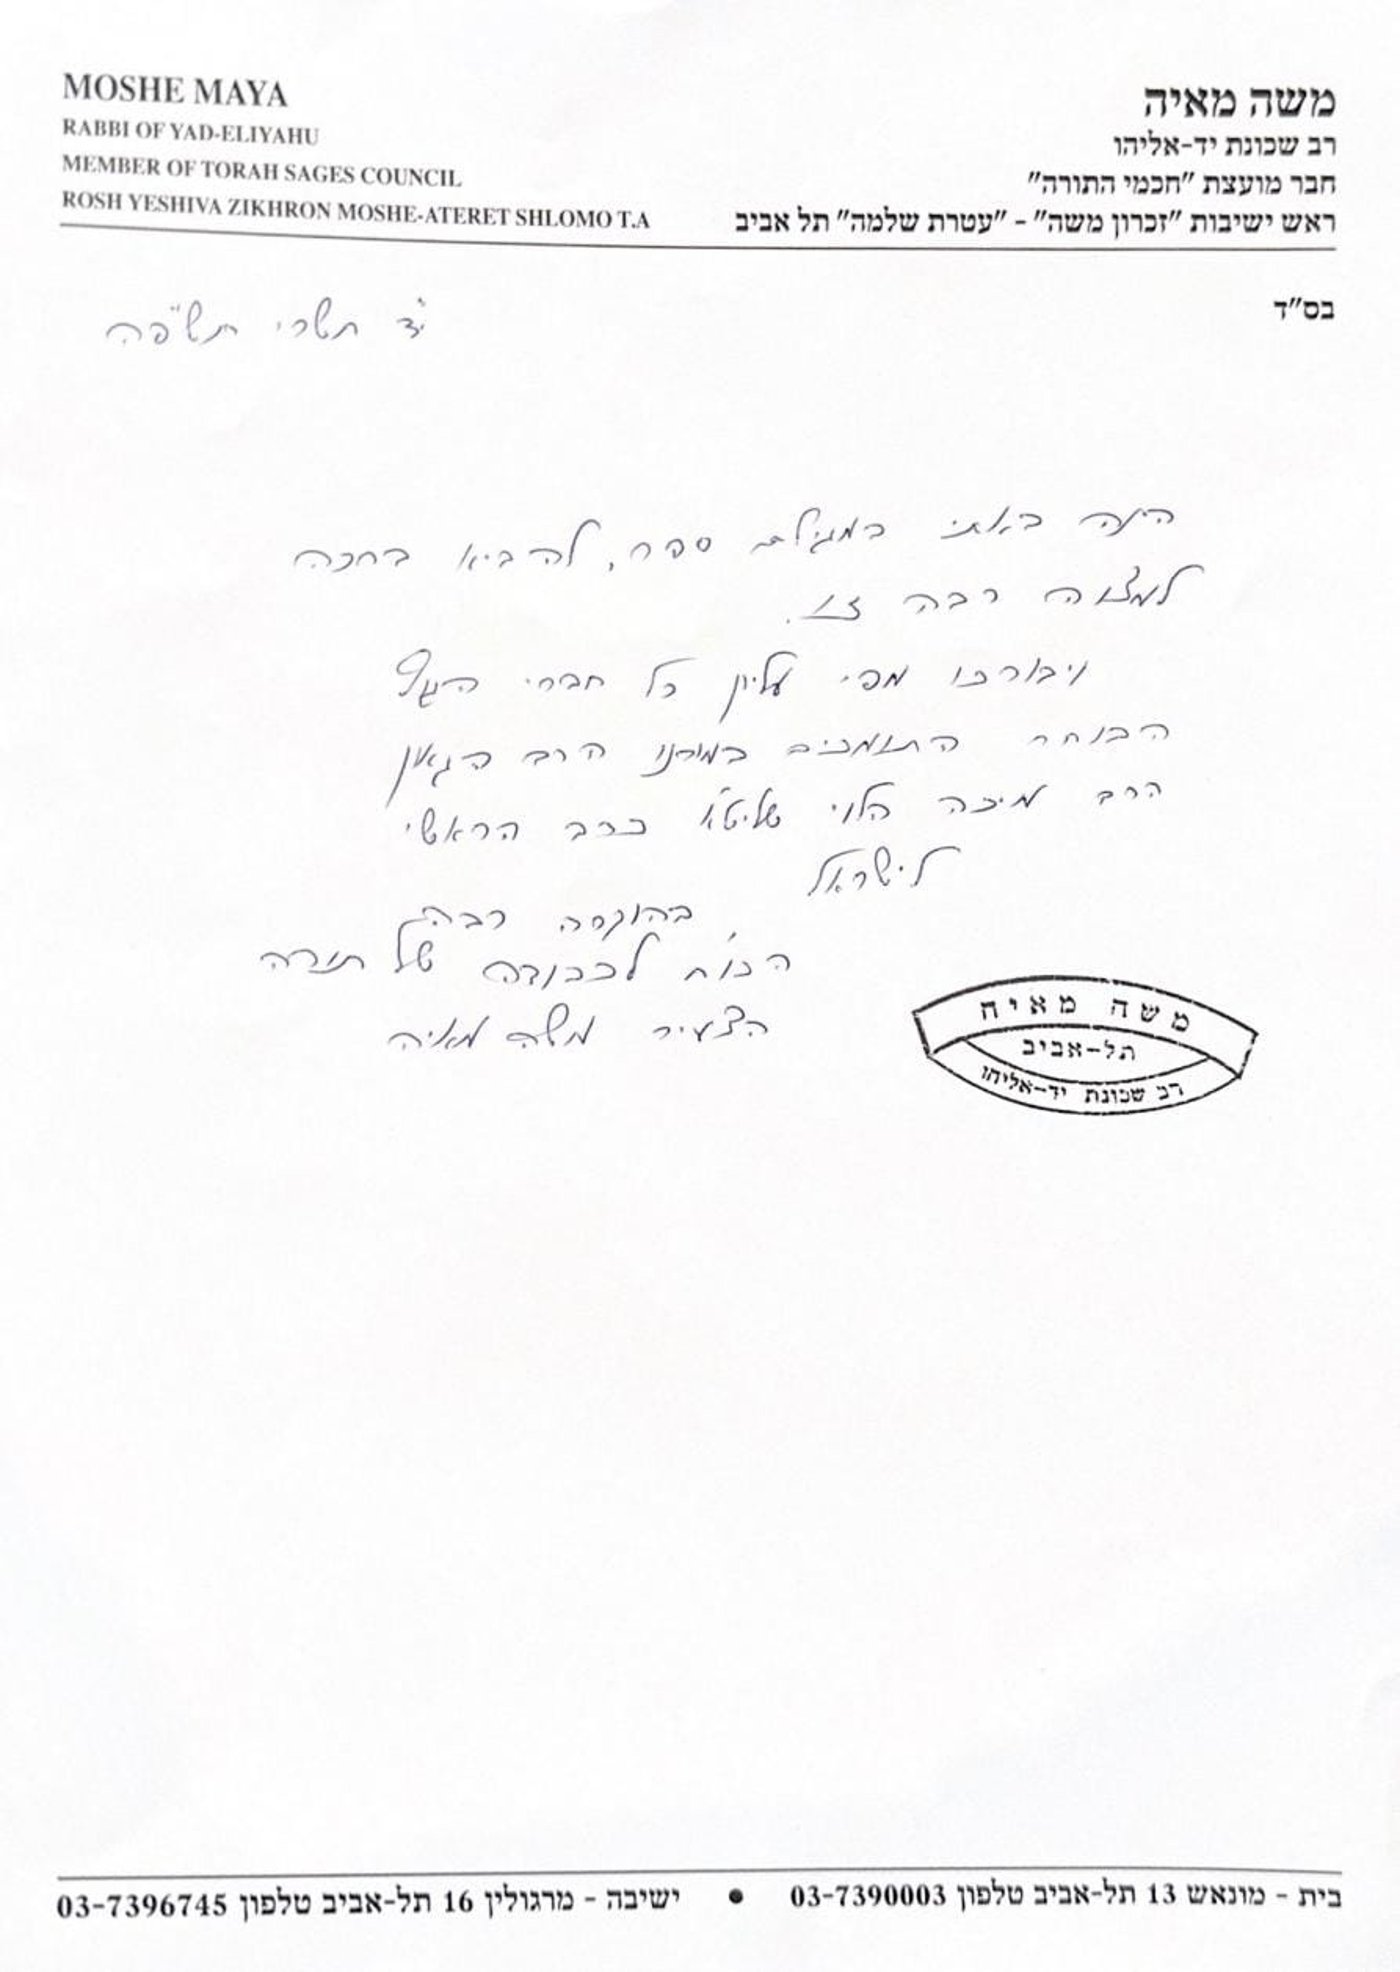 MOSHE MAYA
RABBI OF YAD-ELIYAHU
MEMBER OF TORAH SAGES COUNCIL
ROSH YESHIVA ZIKHRON MOSHE-ATERET SHLOMO T.A
משה מאיה
רב שכונת יד-אליהו
חבר מועצת "חכמי התורה"
ראש ישיבות "זכרון משה" - "עטרת שלמה" תל אביב
בס"ד
י"ד תשרי תש"פה
הינה באתי במגילת ספר, להביא ברכה
למצוה רבה זו.
ויבורכו מפי עליון כל חברי הגוף
הבוחר התומכים במורנו הרב הגאון
הרב מיכה הלוי שליט"א כרב הראשי
לישראל
בהוקרה רבה
הכו"ח לכבודה של תורה
הצעיר משה מאיה
משה מאיה
תל-אביב
רב שכונת יד-אליהו
בית - מונאש 13 תל-אביב טלפון 03-7390003 • ישיבה - מרגולין 16 תל-אביב טלפון 03-7396745